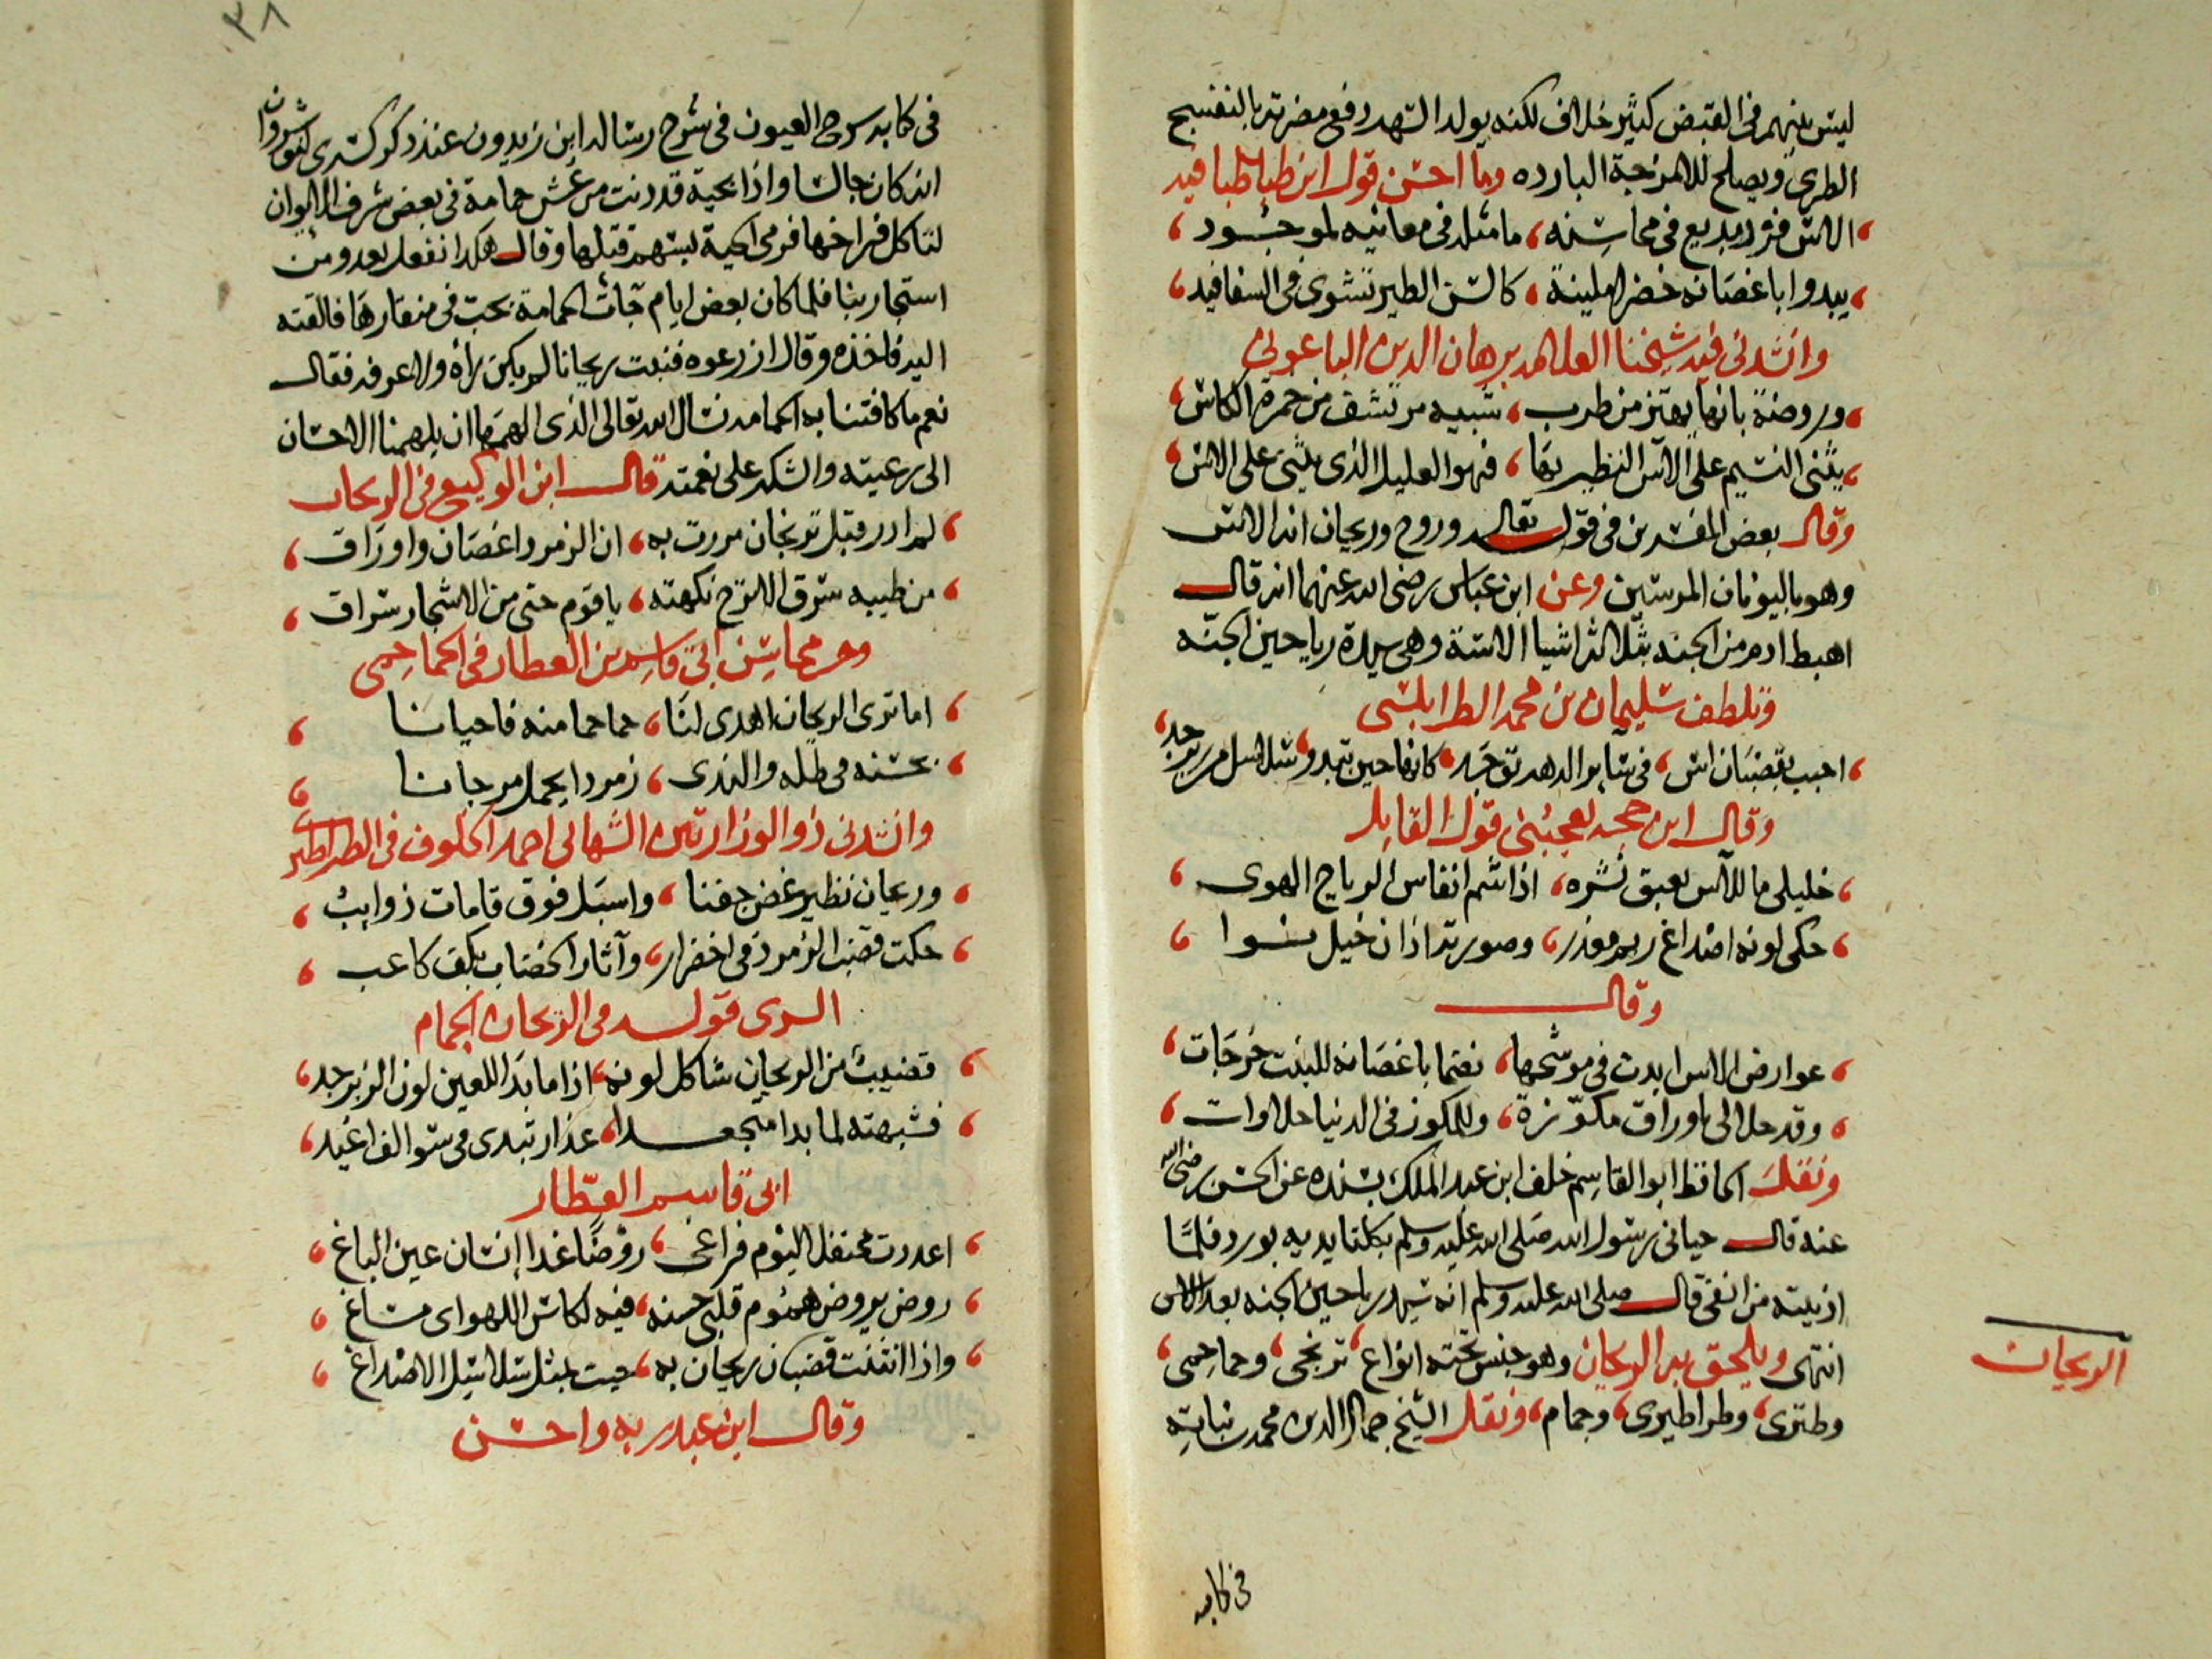 ليس بينهم في القبض كثير خلاف لكنه يولد السهد دفع مضرته بالنفسج
الطري ويصلح للامزجة البارده وما احسن قول ابن طباطبا فيه
الاس فرد بديع في محاسنه ما مثله في معانيه لموجود
يبدوا باغصانه خضرا ملينة كالسن الطير تشوى في السفافيد
وانشدني فيه شيخنا العلامه برهان الدين الباعوني
وروضة بانها يهتز من طرب شبيه مرتشف من خمرة الكاس
يثني النسيم على الآس النظير بها فهو العليل الذي يثنى على الاس
وقال بعض المفسرين في قوله تعالى وروح وريحان انه الاس
وهو باليونان المرسين وعن ابن عباس رضى الله عنهما انه قال
اهبط ادم من الجنه بثلاثة اشيا الاسة وهى سيدة رياحين الجنه
وتلطف سليمان بن محمد الطرابلسى
احبب بقضبان اس في سآير الدهر توجد كانها حين تبدو سلاسل من زبرجد
وقال ابن حجه يعجبني قول القايل
خليلي ما للآس يعبق نشره اذا شم انفاس الرياح الهوى
حكى لونه اصداغ ريم معذر وصورته اذان خيل نوا
وقال
عوارض الاس ابدت في موشحها نعتما باغصانه للبنت خرجات
وقد حلا لي اوراق مكوّزة وللمكوز في الدنيا حلاوات
ونقل الحافظ ابو القاسم خلف ابن عبد الملك بسنده عن الحسن رضى الله
عنه قال حياني رسول الله صلى الله عليه وسلم بكلتا يديه بورد فلما
ادنيته من انفى قال صلى الله عليه وسلم انه سيد رياحين الجنه بعد الاس
انتهى ويلحق به الريحان وهو جنس تحته انواع ترنجى وحماحمى
وطترى وطراطيرى وجمام ونقل الشيخ جمال الدين محمد نباتة
الريحان
في كتابه
٣٨
في كتابه سرح العيون في شرح رسالة ابن زيدون عند ذكر كسرى انوشروان
انه كان جالسا واذا بحية قد دنت من عش حمامة في بعض شرف الايوان
لتاكل فراخها فرمى الحية بسهم قتلها وقال هكذا نفعل بعدو من
استجار بنا فلما كان بعض ايام جآت الحمامة بحب في منقارها فالقته
اليه فاخذه وقال ازرعوه فنبت ريحانا لم يكن رأه ولا عرفه فقال
نعم ما كافتنا به الحمامه نسال الله تعالى الذى الهمها ان يلهمنا الاحسان
الى رعيته والشكر على نعمته قال ابن الوكيع في الريحان
لم ادر قبل ترنجان مررت به ان الزمرد اغصان واوراق
من طيبه سرق الاترج نكهته يا قوم حتى من الاشجار سراق
ومن محاسن ابي قاسم بن العطار في الحماحمى
اما ترى الريحان اهدى لنا حماحما منه فاحيانا
بحسنه في طله والندى زمردا يحمل مرجانا
وانشدني ذو الوزارتين الشهابي احمد الخلوف في الطراطير
وريحان نظير غض جفنا واسبل فوق قامات ذوايب
حكت قضب الزمرد في اخضرار وآثار الخضاب بكف كاعب
السرى قوله في الريحان الجمام
قضيب من الريحان شاكل لونه اذا ما بدا للعين لون الزبرجد
فشبهته لما بدا متجعدا عذار تبدى في سوالف اغيد
ابي قاسم العطار
اعددت محتفل اليوم فراغى روضا غدا انسان عين الباغ
روض يروض هموم قلبى حسنه فيه لكاس اللهو اى مساغ
واذا انثنت قضبان ريحان به حيت بمثل سلاسل الاصداغ
وقال ابن عبد ربه واحسن